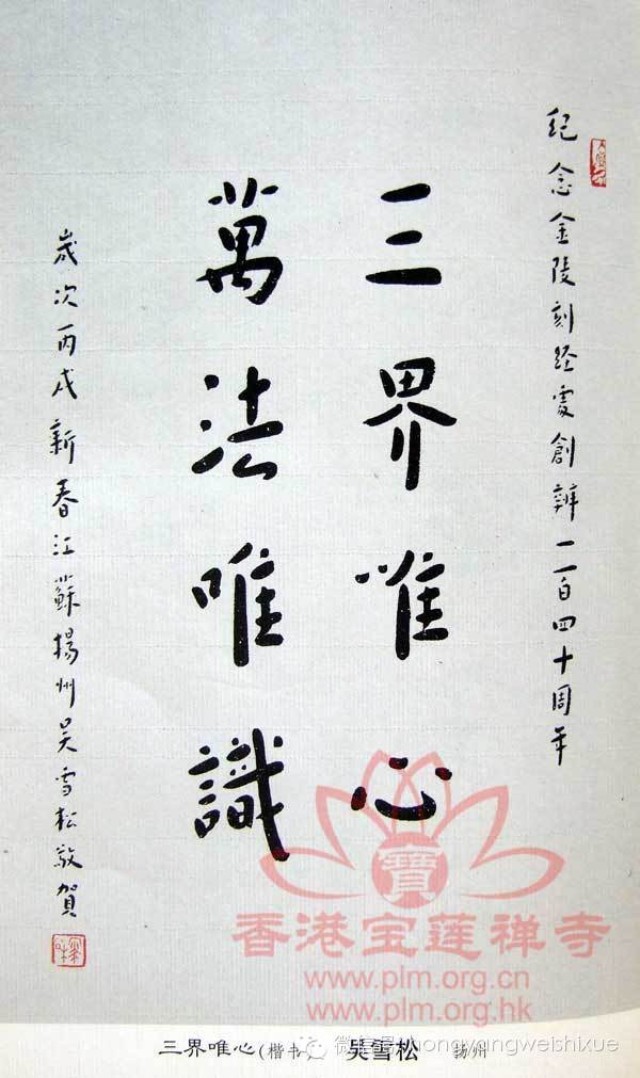 紀念金陵刻经處創辨一百四十周年
三界唯心
萬法唯識
歲次丙戌新春江蘇揚州吴雪松敬賀
寶
香港宝莲禅寺
www.plm.org.cn
www.plm.org.hk
三界唯心(楷书) 吴雪松 扬州
hongyangweishixue